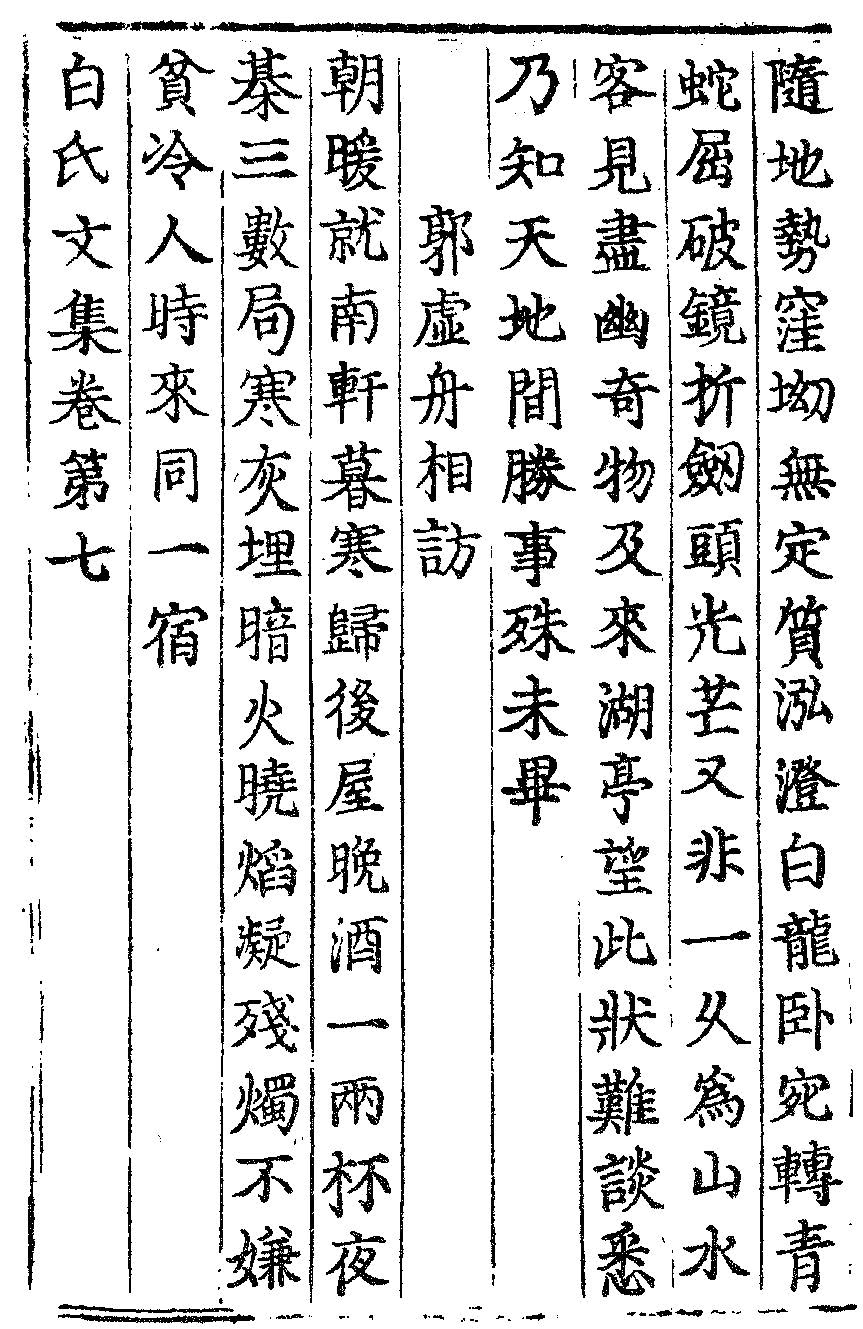 隨地勢窪坳無定質泓澄白龍卧宛轉青
蛇屈破鏡折劔頭光芒又非一乆爲山水
客見盡幽奇物及來湖亭望此狀難談悉
乃知天地間勝事殊未畢
郭虛舟相訪
朝暖就南軒暮寒歸後屋晚酒一兩杯夜
棊三數局寒灰埋暗火曉熖凝殘燭不嫌
貧冷人時來同一宿
白氏文集卷第七